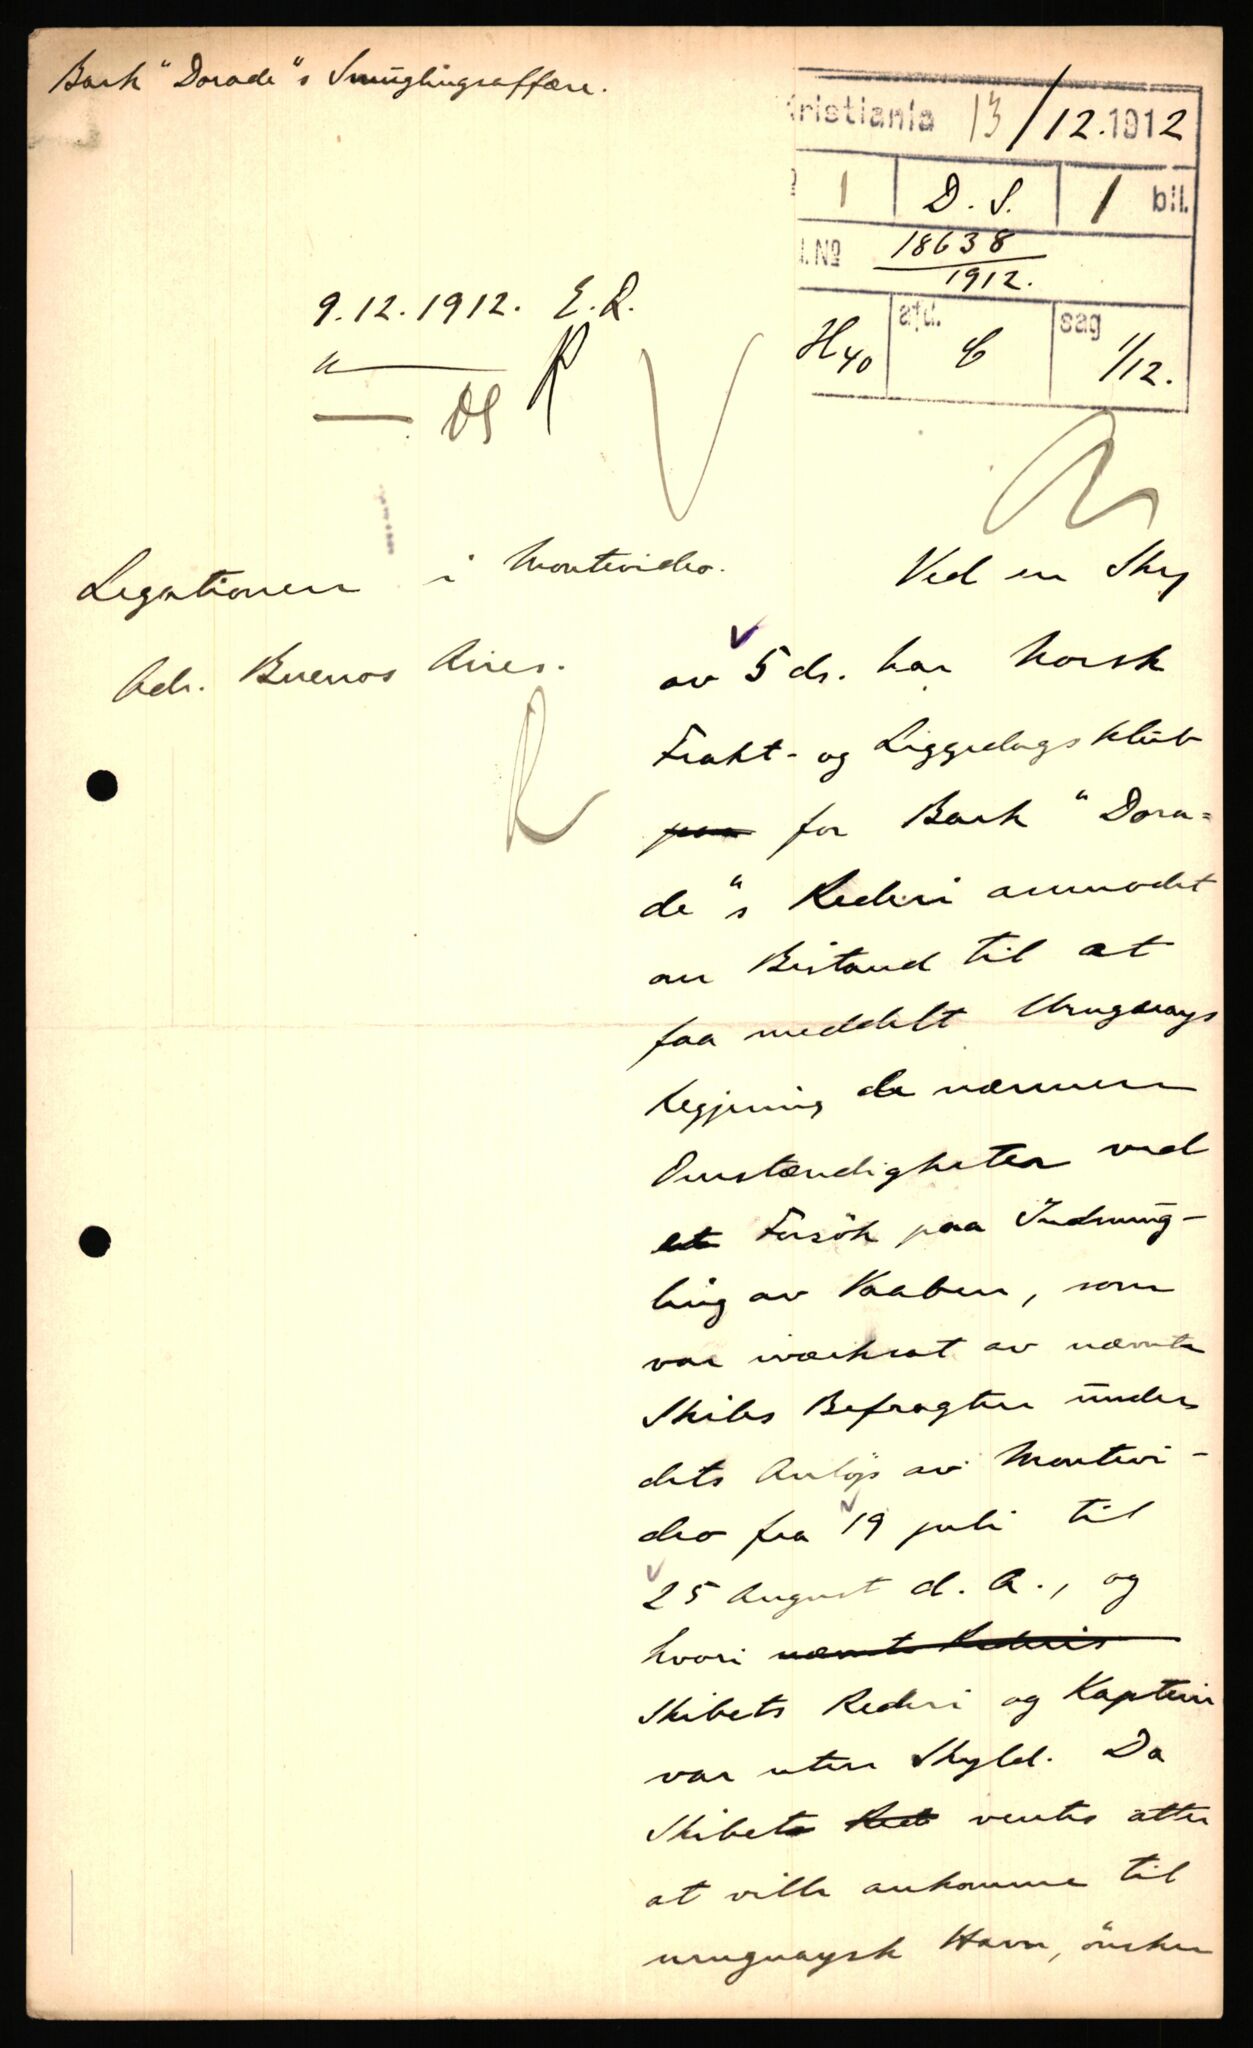 Bark "Dorade"s Smuglingsaffære.
Kristiania 13/12.1912
1 D. S. 1 bil.
J. No 18638
1912.
H40 afd. C sag 1/12.
9.12.1912. E.R.
Legationen i Montevideo.
Adr. Buenos Aires.
Ved en Skr
av 5 ds. har Norsk
Frakt- og Liggedagsklub
paa for Bark "Dora=
de"s Rederi anmodet
om Bistand til at
faa meddelt Uruguays
Regjering de nærmere
Omstændigheter ved
et Forsök paa Indsmug-
ling av Vaaben, som
var iverksat av nævnte
Skibs Befragter under
dets Anløp av Montevi-
deo fra 19 juli til
25 August d. A., og
hvori nævnte Rederis
Skibets Rederi og Kaptein
var uten Skyld. Da
Skibets Red ventes atter
at ville ankomme til
uruguaysk Havn, önsker